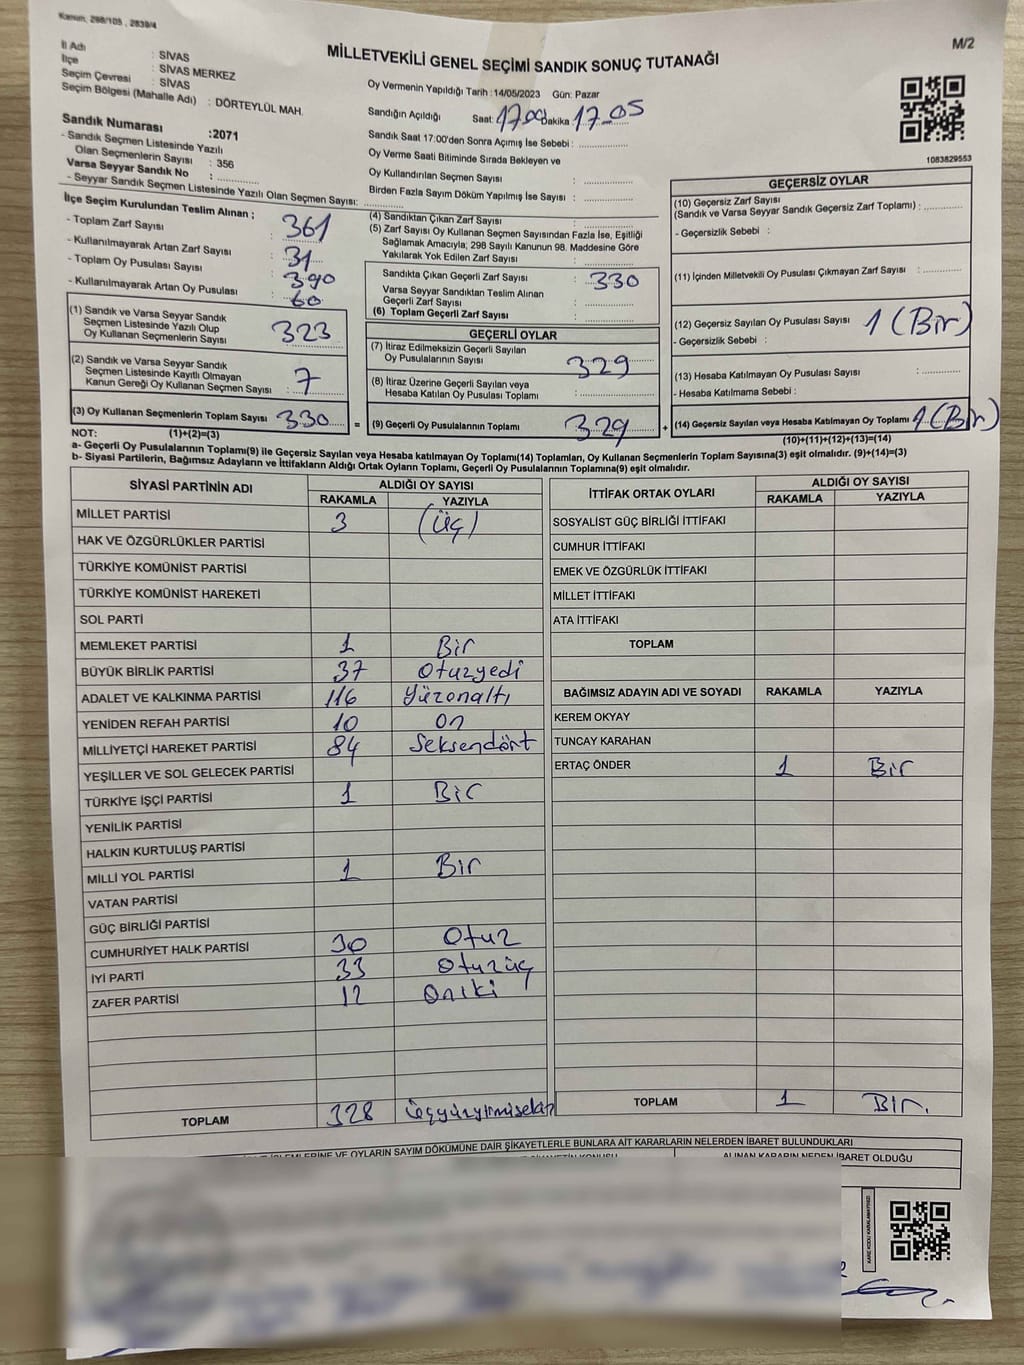 Kanun, 298/105 , 2839/4
M/2
MİLLETVEKİLİ GENEL SEÇİMİ SANDIK SONUÇ TUTANAĞI
İl Adı : SİVAS
İlçe : SİVAS MERKEZ
Seçim Çevresi : SİVAS
Seçim Bölgesi (Mahalle Adı) : DÖRTEYLÜL MAH.
Sandık Numarası :2071
- Sandık Seçmen Listesinde Yazılı
Olan Seçmenlerin Sayısı : 356
Varsa Seyyar Sandık No :
- Seyyar Sandık Seçmen Listesinde Yazılı Olan Seçmen Sayısı:
Oy Vermenin Yapıldığı Tarih :14/05/2023 Gün: Pazar
Sandığın Açıldığı Saat: 17.00 Dakika: 17.05
Sandık Saat 17:00'den Sonra Açımış İse Sebebi :
Oy Verme Saati Bitiminde Sırada Bekleyen ve
Oy Kullandırılan Seçmen Sayısı :
Birden Fazla Sayım Döküm Yapılmış İse Sayısı :
1083829553
İlçe Seçim Kurulundan Teslim Alınan ;
- Toplam Zarf Sayısı : 361
- Kullanılmayarak Artan Zarf Sayısı : 31
- Toplam Oy Pusulası Sayısı : 390
- Kullanılmayarak Artan Oy Pusulası : 60
(1) Sandık ve Varsa Seyyar Sandık
Seçmen Listesinde Yazılı Olup
Oy Kullanan Seçmenlerin Sayısı : 323
(2) Sandık ve Varsa Seyyar Sandık
Seçmen Listesinde Kayıtlı Olmayan
Kanun Gereği Oy Kullanan Seçmen Sayısı : 7
(3) Oy Kullanan Seçmenlerin Toplam Sayısı : 330 =
(4) Sandıktan Çıkan Zarf Sayısı :
(5) Zarf Sayısı Oy Kullanan Seçmen Sayısından Fazla İse, Eşitliği
Sağlamak Amacıyla; 298 Sayılı Kanunun 98. Maddesine Göre
Yakılarak Yok Edilen Zarf Sayısı :
Sandıkta Çıkan Geçerli Zarf Sayısı : 330
Varsa Seyyar Sandıktan Teslim Alınan
Geçerli Zarf Sayısı :
(6) Toplam Geçerli Zarf Sayısı :
GEÇERLİ OYLAR
(7) İtiraz Edilmeksizin Geçerli Sayılan
Oy Pusulalarının Sayısı : 329
(8) İtiraz Üzerine Geçerli Sayılan veya
Hesaba Katılan Oy Pusulası Toplamı :
(9) Geçerli Oy Pusulalarının Toplamı : 329 +
GEÇERSİZ OYLAR
(10) Geçersiz Zarf Sayısı
(Sandık ve Varsa Seyyar Sandık Geçersiz Zarf Toplamı) :
- Geçersizlik Sebebi :
(11) İçinden Milletvekili Oy Pusulası Çıkmayan Zarf Sayısı :
(12) Geçersiz Sayılan Oy Pusulası Sayısı : 1 (Bir)
- Geçersizlik Sebebi :
(13) Hesaba Katılmayan Oy Pusulası Sayısı :
- Hesaba Katılmama Sebebi :
(14) Geçersiz Sayılan veya Hesaba Katılmayan Oy Toplamı : 1 (Bir)
NOT: (1)+(2)=(3)
(10)+(11)+(12)+(13)=(14)
a- Geçerli Oy Pusulalarının Toplamı(9) ile Geçersiz Sayılan veya Hesaba katılmayan Oy Toplamı(14) Toplamları, Oy Kullanan Seçmenlerin Toplam Sayısına(3) eşit olmalıdır. (9)+(14)=(3)
b- Siyasi Partilerin, Bağımsız Adayların ve İttifakların Aldığı Ortak Oyların Toplamı, Geçerli Oy Pusulalarının Toplamına(9) eşit olmalıdır.
SİYASİ PARTİNİN ADI ALDIĞI OY SAYISI
RAKAMLA YAZIYLA
MİLLET PARTİSİ 3 (Üç)
HAK VE ÖZGÜRLÜKLER PARTİSİ
TÜRKİYE KOMÜNİST PARTİSİ
TÜRKİYE KOMÜNİST HAREKETİ
SOL PARTİ
MEMLEKET PARTİSİ 1 Bir
BÜYÜK BİRLİK PARTİSİ 37 Otuzyedi
ADALET VE KALKINMA PARTİSİ 116 Yüzonaltı
YENİDEN REFAH PARTİSİ 10 On
MİLLİYETÇİ HAREKET PARTİSİ 84 Seksendört
YEŞİLLER VE SOL GELECEK PARTİSİ
TÜRKİYE İŞÇİ PARTİSİ 1 Bir
YENİLİK PARTİSİ
HALKIN KURTULUŞ PARTİSİ
MİLLİ YOL PARTİSİ 1 Bir
VATAN PARTİSİ
GÜÇ BİRLİĞİ PARTİSİ
CUMHURİYET HALK PARTİSİ 30 Otuz
İYİ PARTİ 33 Otuzüç
ZAFER PARTİSİ 12 Oniki
TOPLAM 328 Üçyüzyirmisekiz
İTTİFAK ORTAK OYLARI ALDIĞI OY SAYISI
RAKAMLA YAZIYLA
SOSYALİST GÜÇ BİRLİĞİ İTTİFAKI
CUMHUR İTTİFAKI
EMEK VE ÖZGÜRLÜK İTTİFAKI
MİLLET İTTİFAKI
ATA İTTİFAKI
TOPLAM
BAĞIMSIZ ADAYIN ADI VE SOYADI RAKAMLA YAZIYLA
KEREM OKYAY
TUNCAY KARAHAN
ERTAÇ ÖNDER 1 Bir
TOPLAM 1 Bir.
İŞLEMLERİNE VE OYLARIN SAYIM DÖKÜMÜNE DAİR ŞİKAYETLERLE BUNLARA AİT KARARLARIN NELERDEN İBARET BULUNDUKLARI
ALINAN KARARIN NEDEN İBARET OLDUĞU